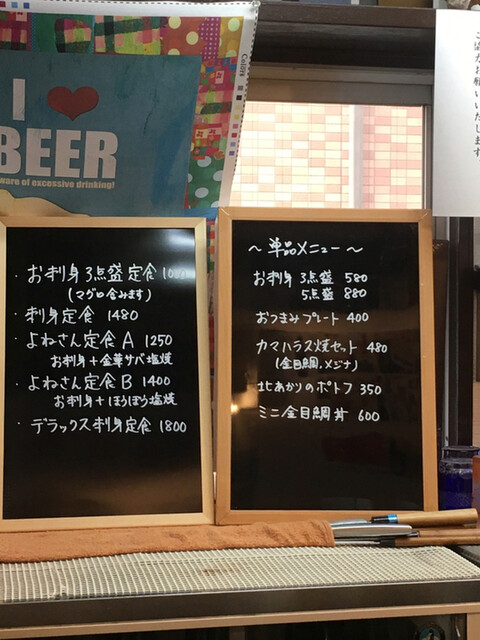 I ♥
BEER
ware of excessive drinking!
Colors
ご協力お願いいたします
・お刺身3点盛定食
(マグロ含みます)
・刺身定食 1480
・よねさん定食A 1250
お刺身+金華サバ塩焼
・よねさん定食B 1400
お刺身+ほうぼう塩焼
・デラックス刺身定食 1800
〜単品メニュー〜
お刺身 3点盛 580
5点盛 880
おつまみプレート 400
カマハラス焼セット 480
(金目鯛.メジナ)
北あかりのポトフ 350
ミニ金目鯛丼 600